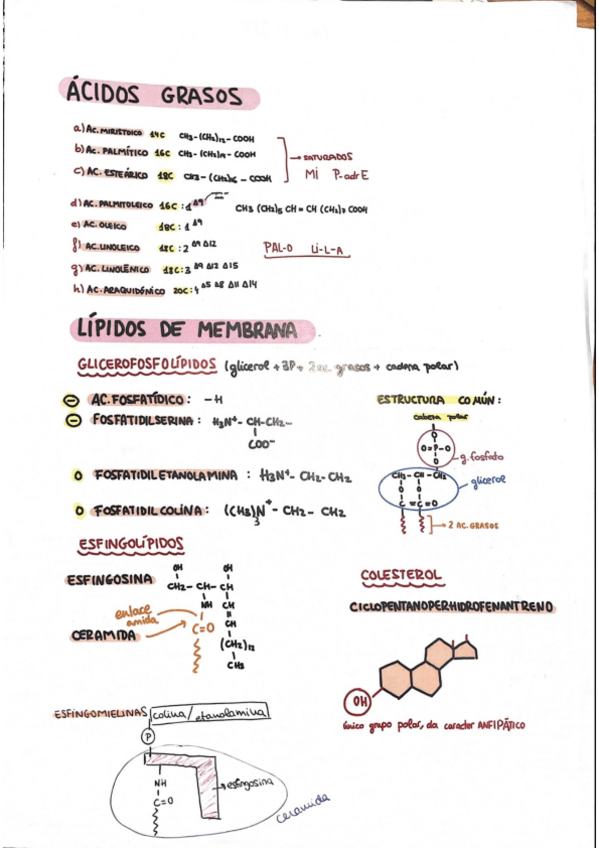 ÁCIDOS GRASOS
a) AC. MIRISTOICO 14C CH3-(CH2)12-COOH
b) AC. PALMÍTICO 16C CH3-(CH2)14-COOH
c) AC. ESTEÁRICO 18C CH3-(CH2)16-COOH
→ SATURADOS
MI P-adrE
d) AC. PALMITOLEICO 16C:1 Δ9 CH3 (CH2)5 CH = CH (CH2)7 COOH
e) AC. OLEICO 18C:1 Δ9
f) AC. LINOLEICO 18C:2 Δ9 Δ12
PAL-O Li-L-A
g) AC. LINOLÉNICO 18C:3 Δ9 Δ12 Δ15
h) AC. ARAQUIDÓNICO 20C:4 Δ5 Δ8 Δ11 Δ14
LÍPIDOS DE MEMBRANA
GLICEROFOSFOLÍPIDOS (glicerol + 3P + 2 ac. grasos + cadena polar)
⊖ AC. FOSFATÍDICO: -H
⊖ FOSFATIDILSERINA: H3N+- CH-CH2-
COO-
O FOSFATIDILETANOLAMINA: H3N+- CH2-CH2
O FOSFATIDILCOLINA: (CH3)3N+- CH2- CH2
ESTRUCTURA COMÚN:
cabeza polar
O
O=P-O
O
g. fosfato
CH2-CH-CH2
glicerol
O O
C=O C=O
→ 2 AC. GRASOS
ESFINGOLÍPIDOS
ESFINGOSINA
OH OH
CH2-CH-CH
NH CH
enlace amida
CH
CERAMIDA
C=O
(CH2)12
CH3
COLESTEROL
CICLOPENTANOPERHIDROFENANTRENO
OH
único grupo polar, da caracter ANFIPÁTICO
ESFINGOMIELINAS colina/etanolamina
P
→ esfingosina
NH
C=O
ceramida